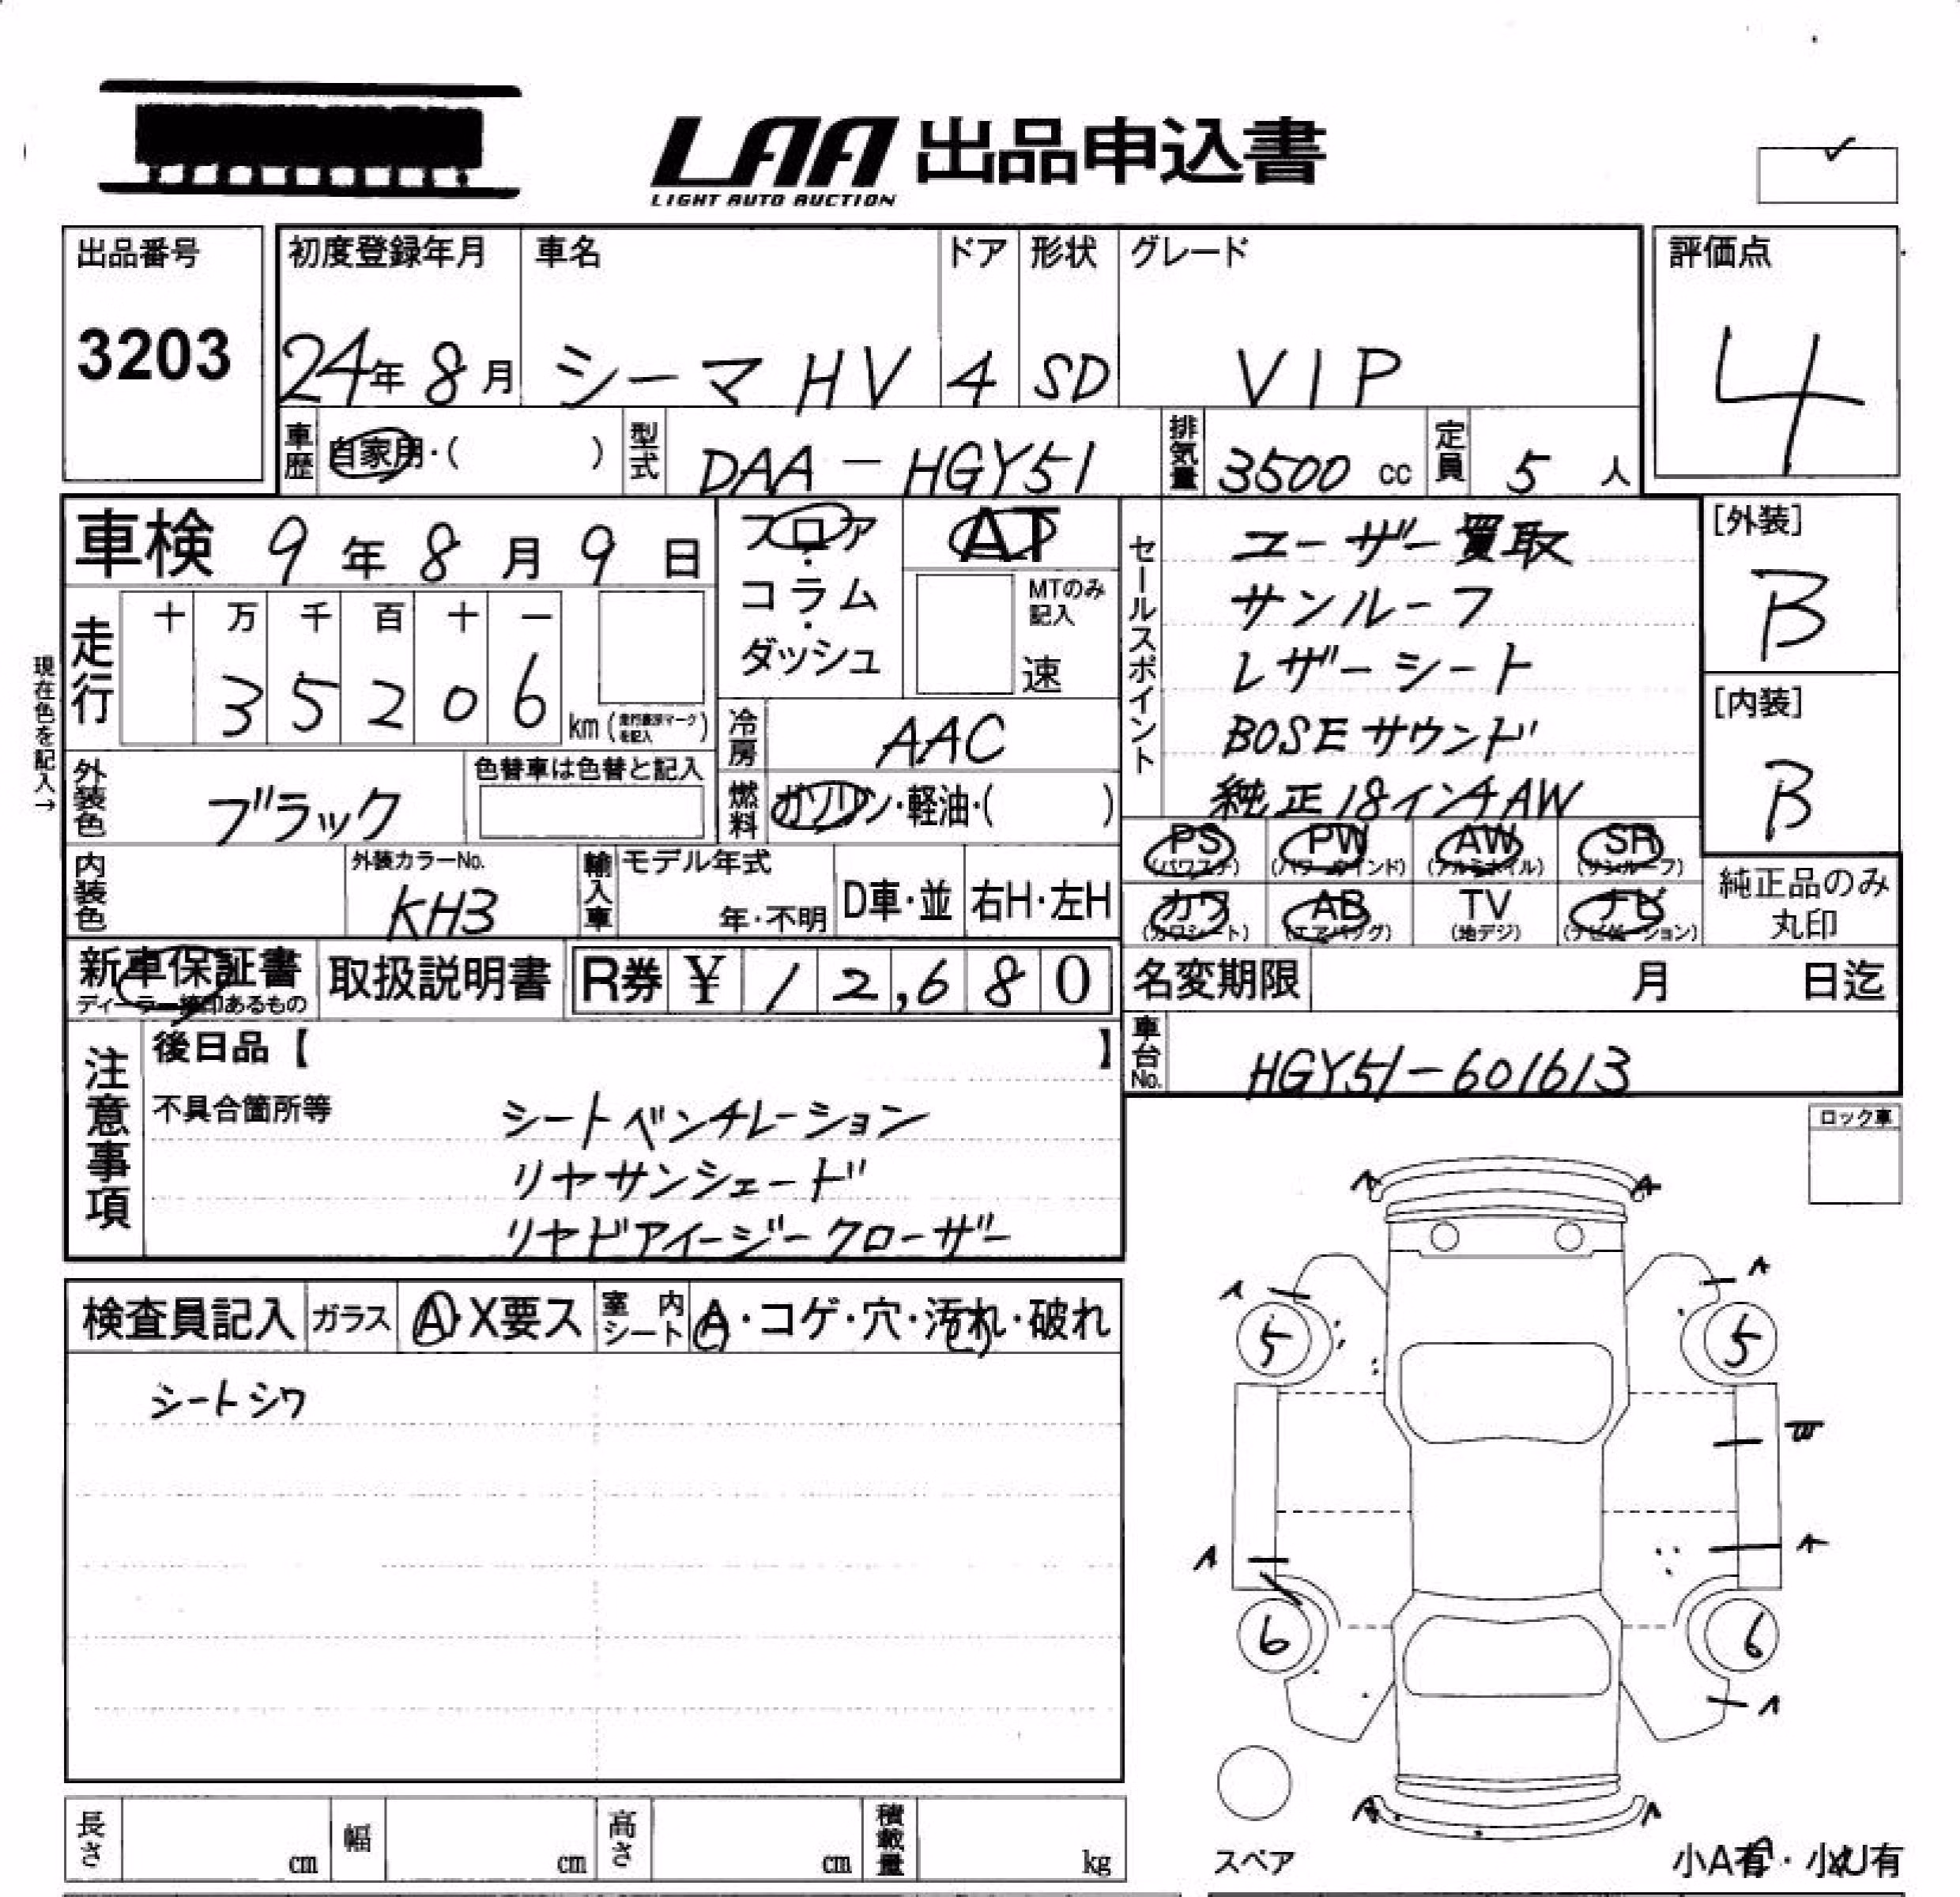 LAA 出品申込書
LIGHT AUTO AUCTION
出品番号
3203
初度登録年月
24年 8月
車名
シーマ HV
ドア
4
形状
SD
グレード
VIP
評価点
4
車歴 自家用・( )
型式 DAA-HGY51
排気量 3500 cc
定員 5 人
車検 9年 8月 9日
フロア・コラム・ダッシュ
AT
MTのみ記入
速
セールスポイント
ユーザー買取
サンルーフ
レザーシート
BOSEサウンド
純正18インチAW
[外装]
B
[内装]
B
現在色を記入→
走行
十 万 千 百 十 一
3 5 2 0 6
km
冷房 AAC
燃料 ガソリン・軽油・( )
外装色 ブラック
色替車は色替と記入
内装色
外装カラーNo.
KH3
輸入車
モデル年式
年・不明
D車・並
右H・左H
PS PW AW SR
(パワステ) (パワーウインド) (アルミホイル) (サンルーフ)
カワ AB TV ナビ
(カワシート) (エアバッグ) (地デジ) (ナビゲーション)
純正品のみ
丸印
新車保証書
ディーラー捺印あるもの
取扱説明書
R券 ¥ 12,680
名変期限 月 日迄
車台No. HGY51-601613
注意事項
後日品【 】
不具合箇所等
シートベンチレーション
リヤサンシェード
リヤドアイージークローザー
ロック車
検査員記入
ガラス A・X要ス
室内シート A・コゲ・穴・汚れ・破れ
シートシワ
A A
A A
5 5
W
A A
6 6
A
A A
スペア
小A有・小U有
長さ cm
幅 cm
高さ cm
積載量 kg